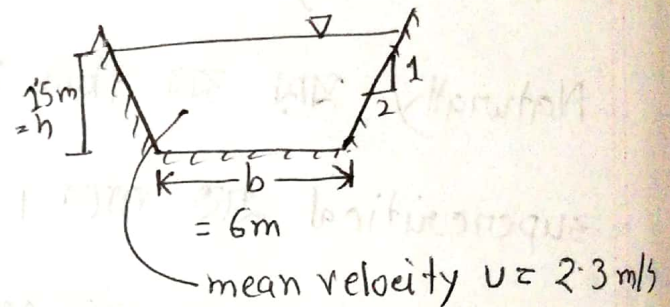 1.5m
= h
1
2
b
= 6m
mean velocity u = 2.3 m/s